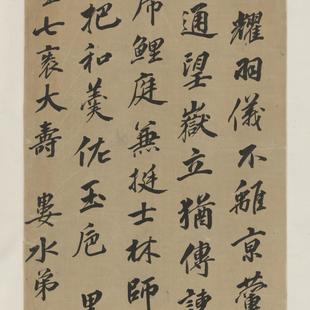 耀羽儀不離京華
通望嶽立猶傳諫
席鯉庭兼挺士林師
把和羹佐玉卮
七袠大壽 婁水弟